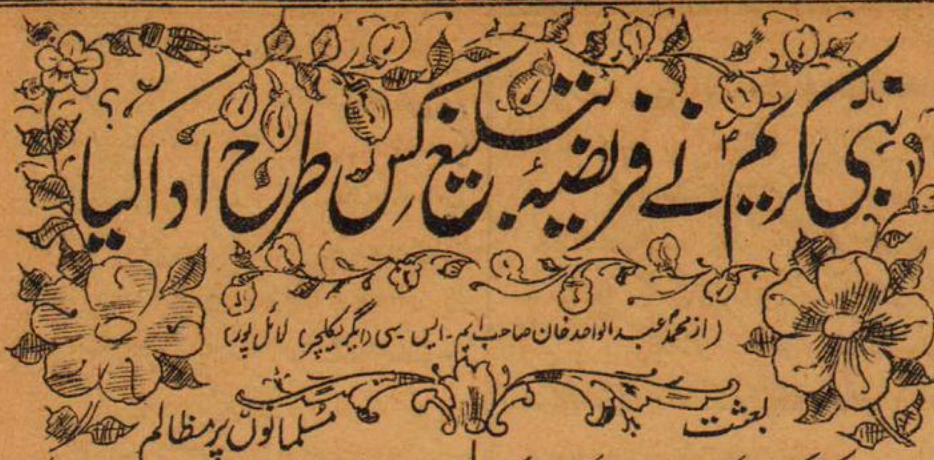 نبی کریمؐ نے فریضۂ تبلیغ کس طرح ادا کیا؟
(از محمد عبدالواحد خان صاحب ایم۔ ایس سی (ایگریکلچر) لائل پور)
بعثت
مسلمانوں پر مظالم